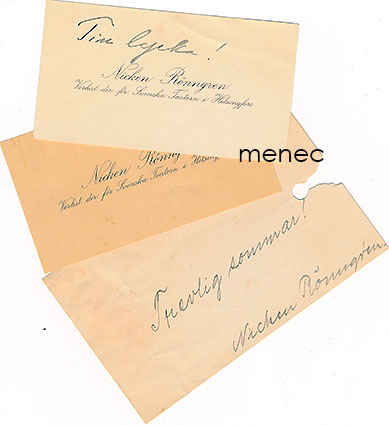 Tin lycka!
Nicken Rönngren
Verkst. dir. för Svenska Teatern i Helsingfors
Nicken Rönng
Verkst. dir. för Svenska Teatern i Helsingf
menec
Trevlig sommar!
Nicken Rönngren.